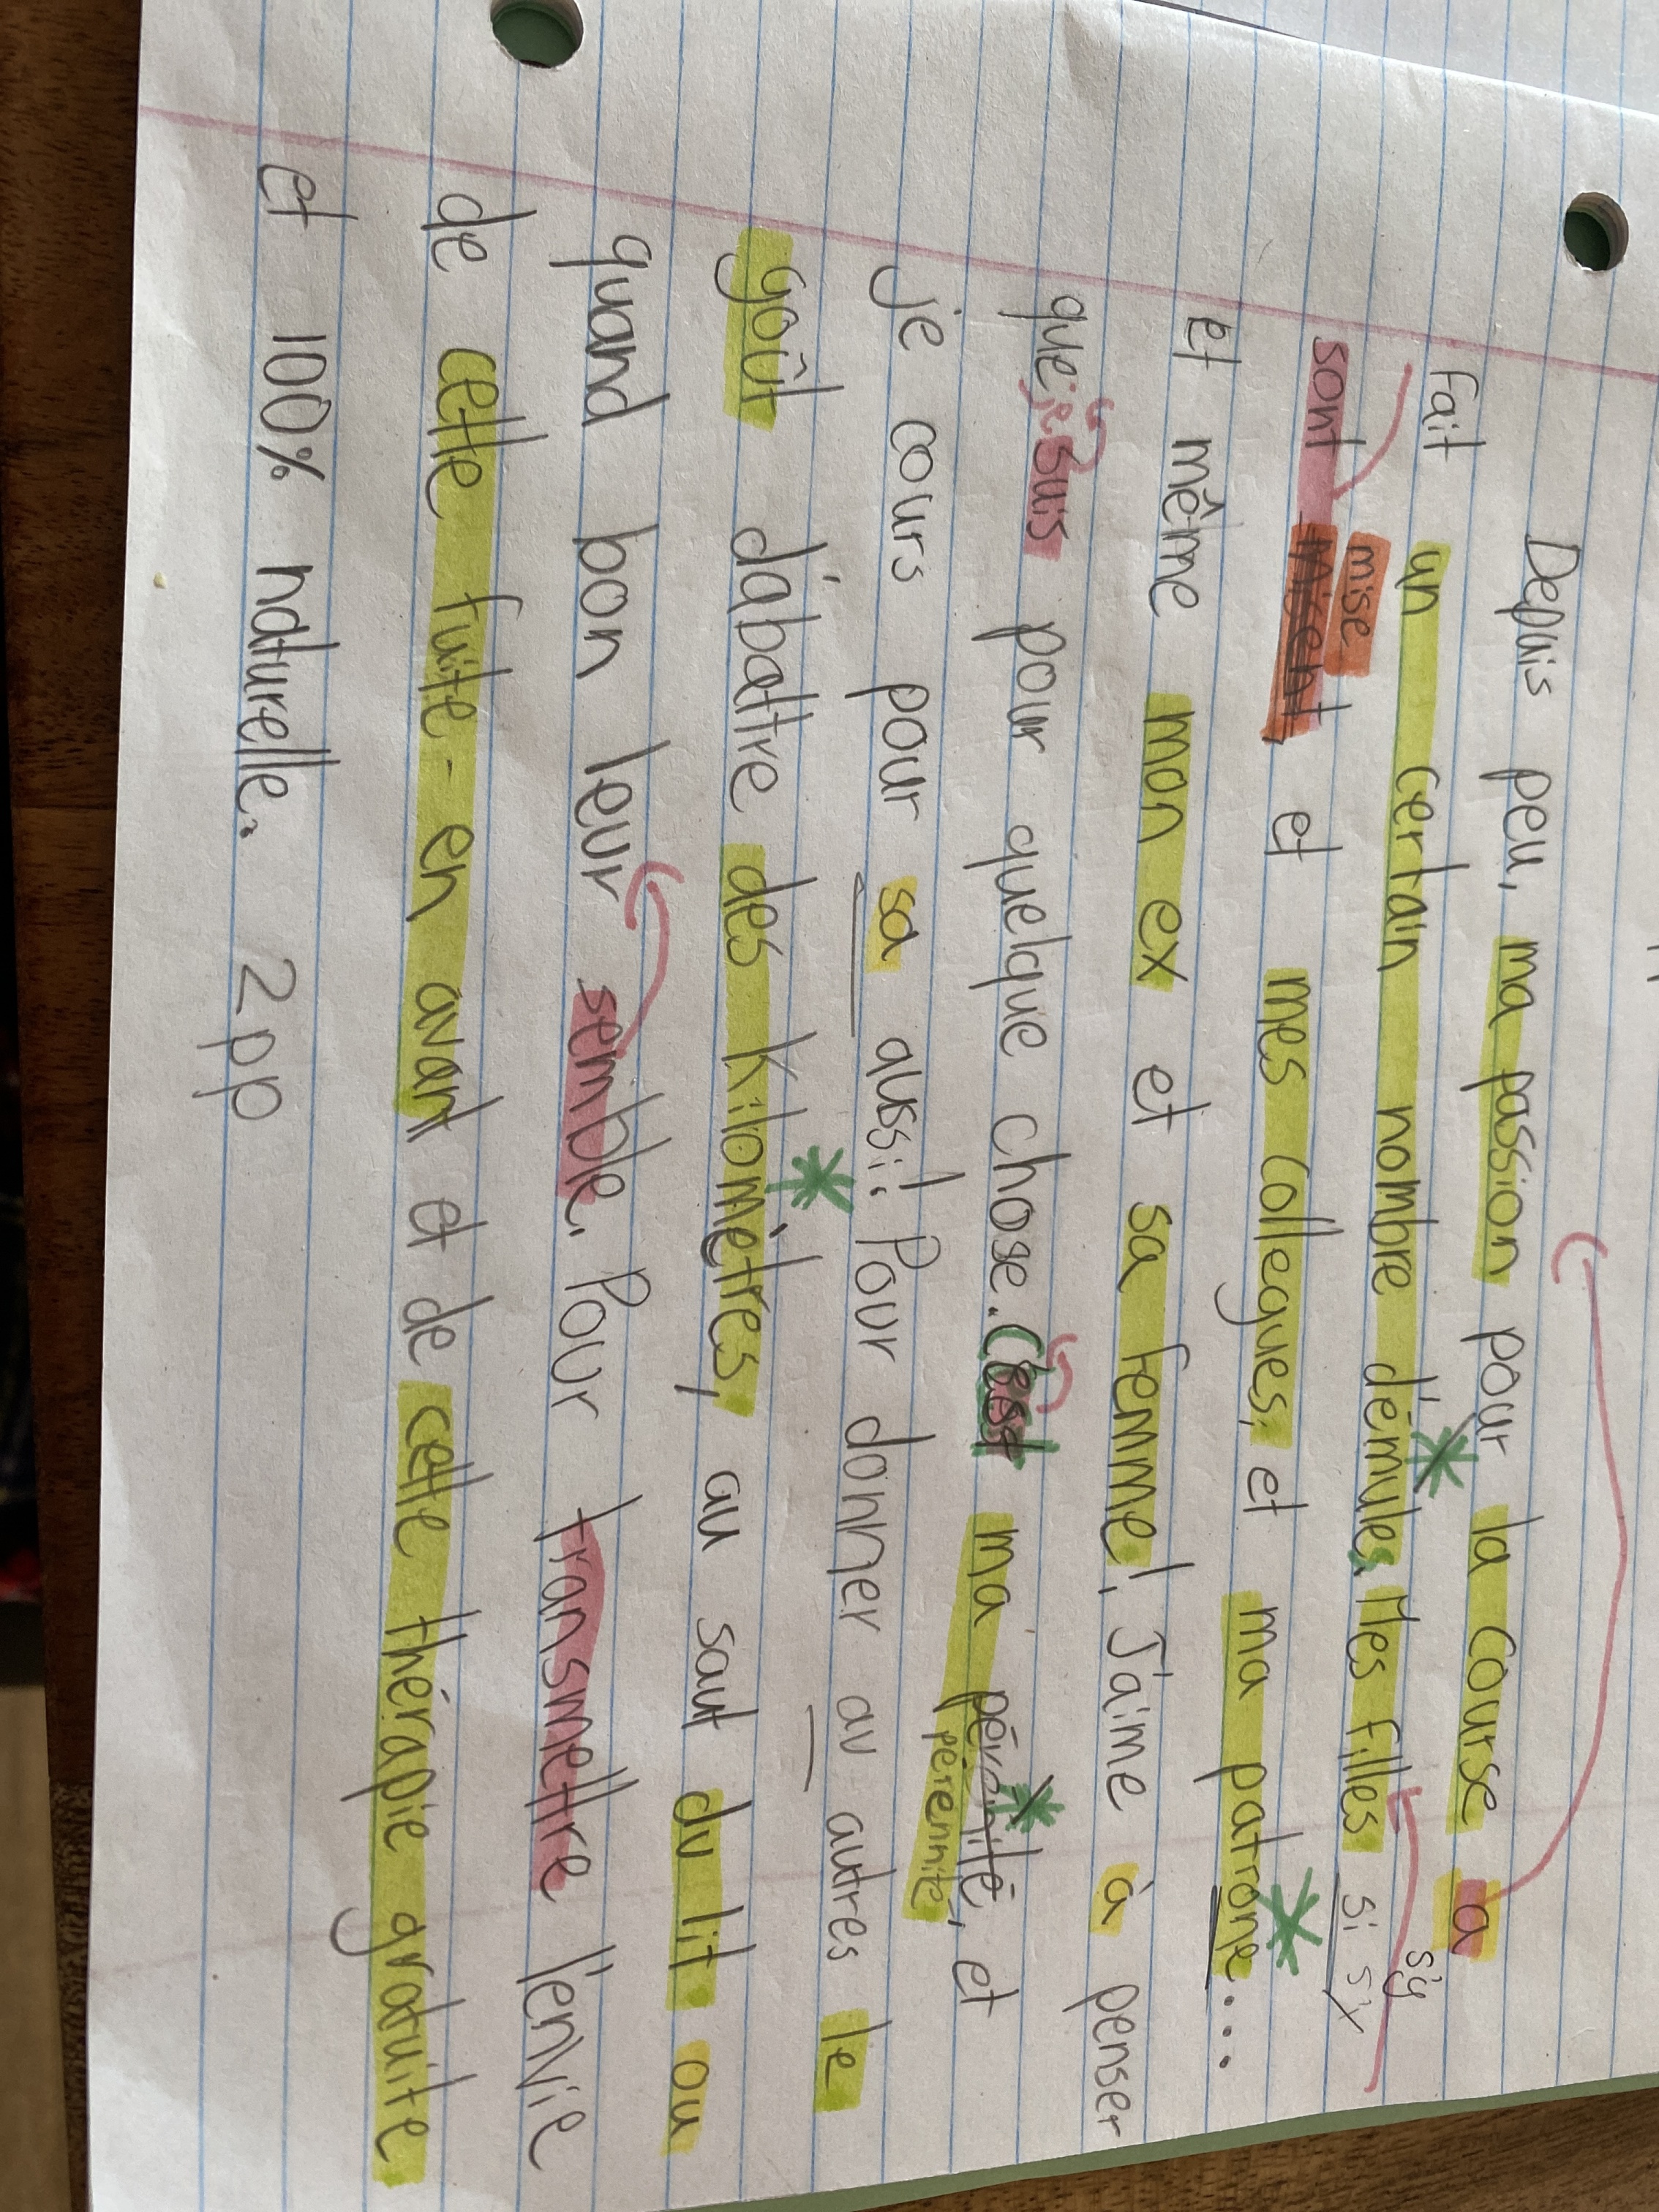 Depuis peu, ma passion pour la course a
s'y
fait un certain nombre d'émules. Mes filles si sy
mise
sont misent, et mes collegues, et ma patrone...
et même mon ex et sa femme! J'aime à penser
que je suis pour quelque chose. C'est ma périnité, et
pérennité
je cours pour sa aussi! Pour donner au autres le
goût d'abattre des kilomètres, au saut du lit ou
quand bon leur semble. Pour transmettre l'envie
de cette fuite-en avant et de cette thérapie gratuite
et 100% naturelle. 2pp